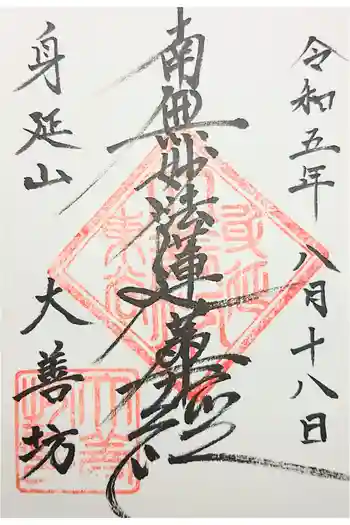 令和五年八月十八日
南無妙法蓮華経
身延山
大善坊